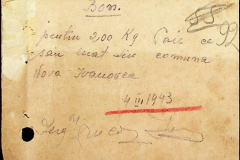 Bon.
pentru 200 Kg Paie ce
sau luat din comuna
Nova Ivanovca
4 III 1943